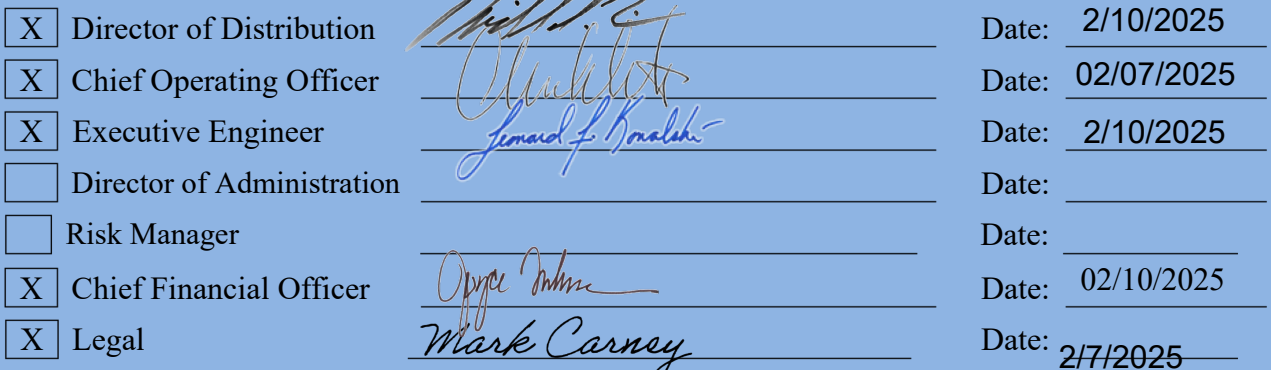 X Director of Distribution Date: 2/10/2025
X Chief Operating Officer Date: 02/07/2025
X Executive Engineer Leonard F. Kowalski Date: 2/10/2025
Director of Administration Date:
Risk Manager Date:
X Chief Financial Officer Joyce Date: 02/10/2025
X Legal Mark Carney Date: 2/7/2025